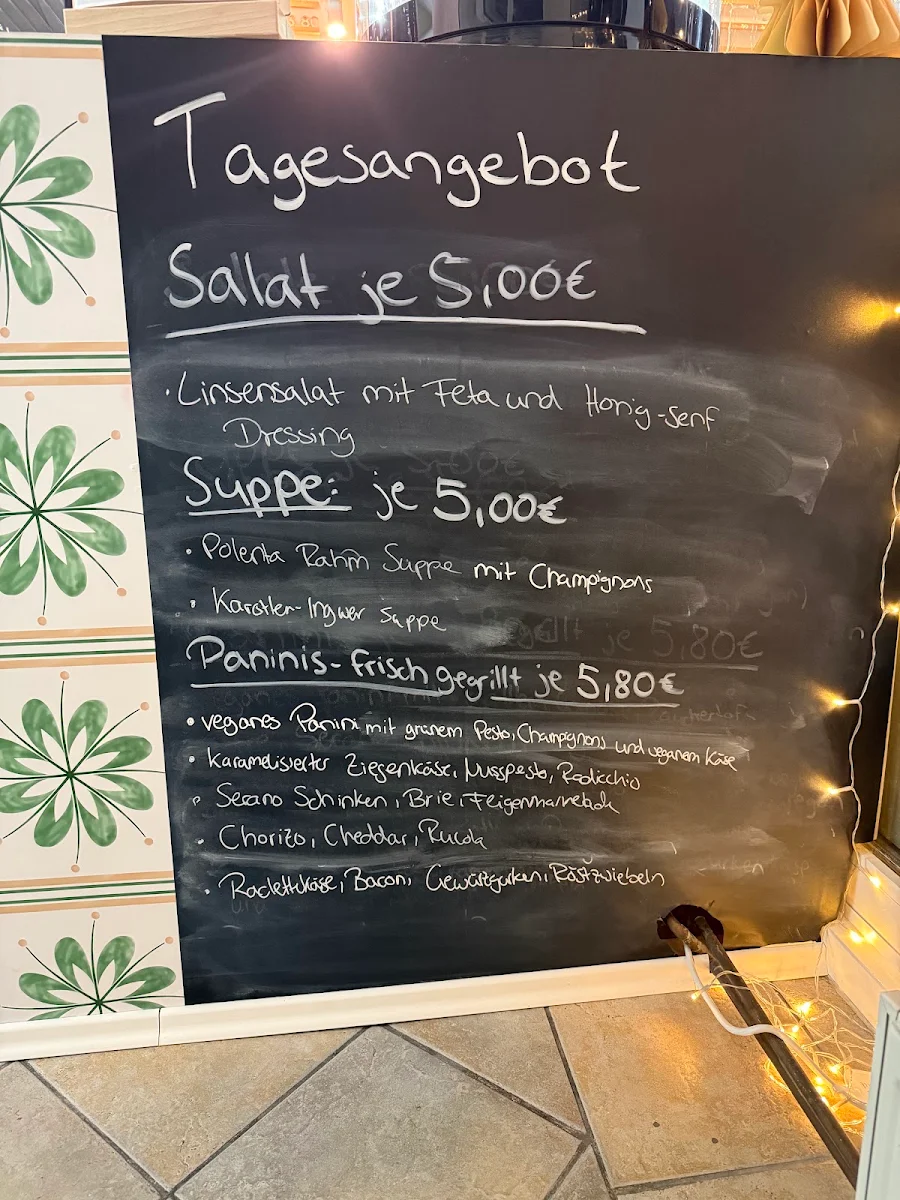 Tagesangebot
Salat je 5,00€
· Linsensalat mit Feta und Honig-senf
Dressing
Suppe: je 5,00€
· Polenta Rahm Suppe mit Champignons
· Karotten-Ingwer Suppe
Paninis - frisch gegrillt je 5,80€
· veganes Panini mit grünem Pesto, Champignons und veganem Käse
· Karamelisierter Ziegenkäse, Nusspesto, Radicchio
· Serano Schinken, Brie, Feigenmarmelade
· Chorizo, Cheddar, Rucola
· Raclettekäse, Bacon, Gewürzgurken, Röstzwiebeln